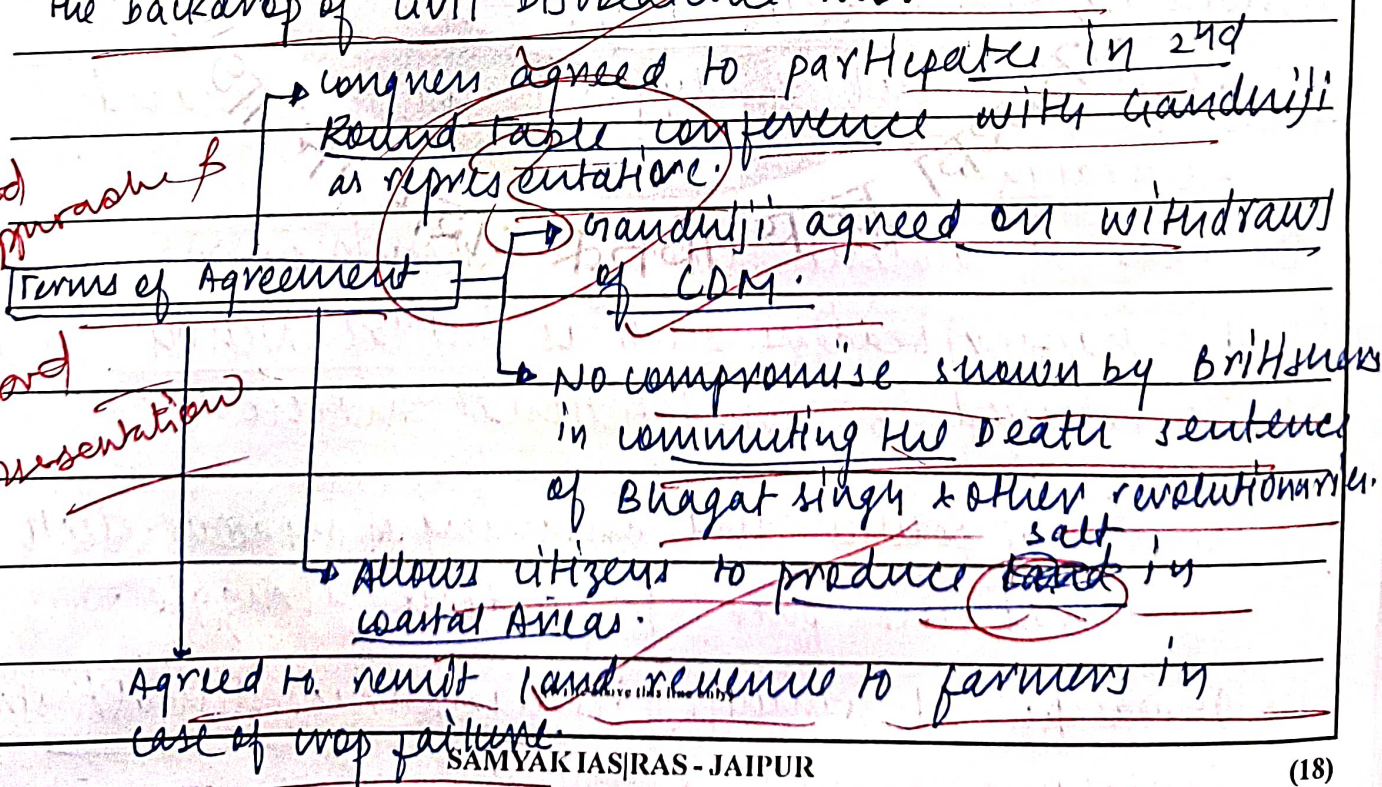 the backdrop of Civil Disobedience
Congress agreed to participate in 2nd
Round table conference with Gandhiji
as representative.
Gandhiji agreed on withdraws
of CDM.
Terms of Agreement
No compromise shown by Britishers
in commuting the Death sentence
of Bhagat singh & other revolutionaries.
salt
Allows citizens to produce in
coastal Areas.
Agreed to remit land revenue to farmers in
case of crop failure.
SAMYAK IAS|RAS - JAIPUR
(18)